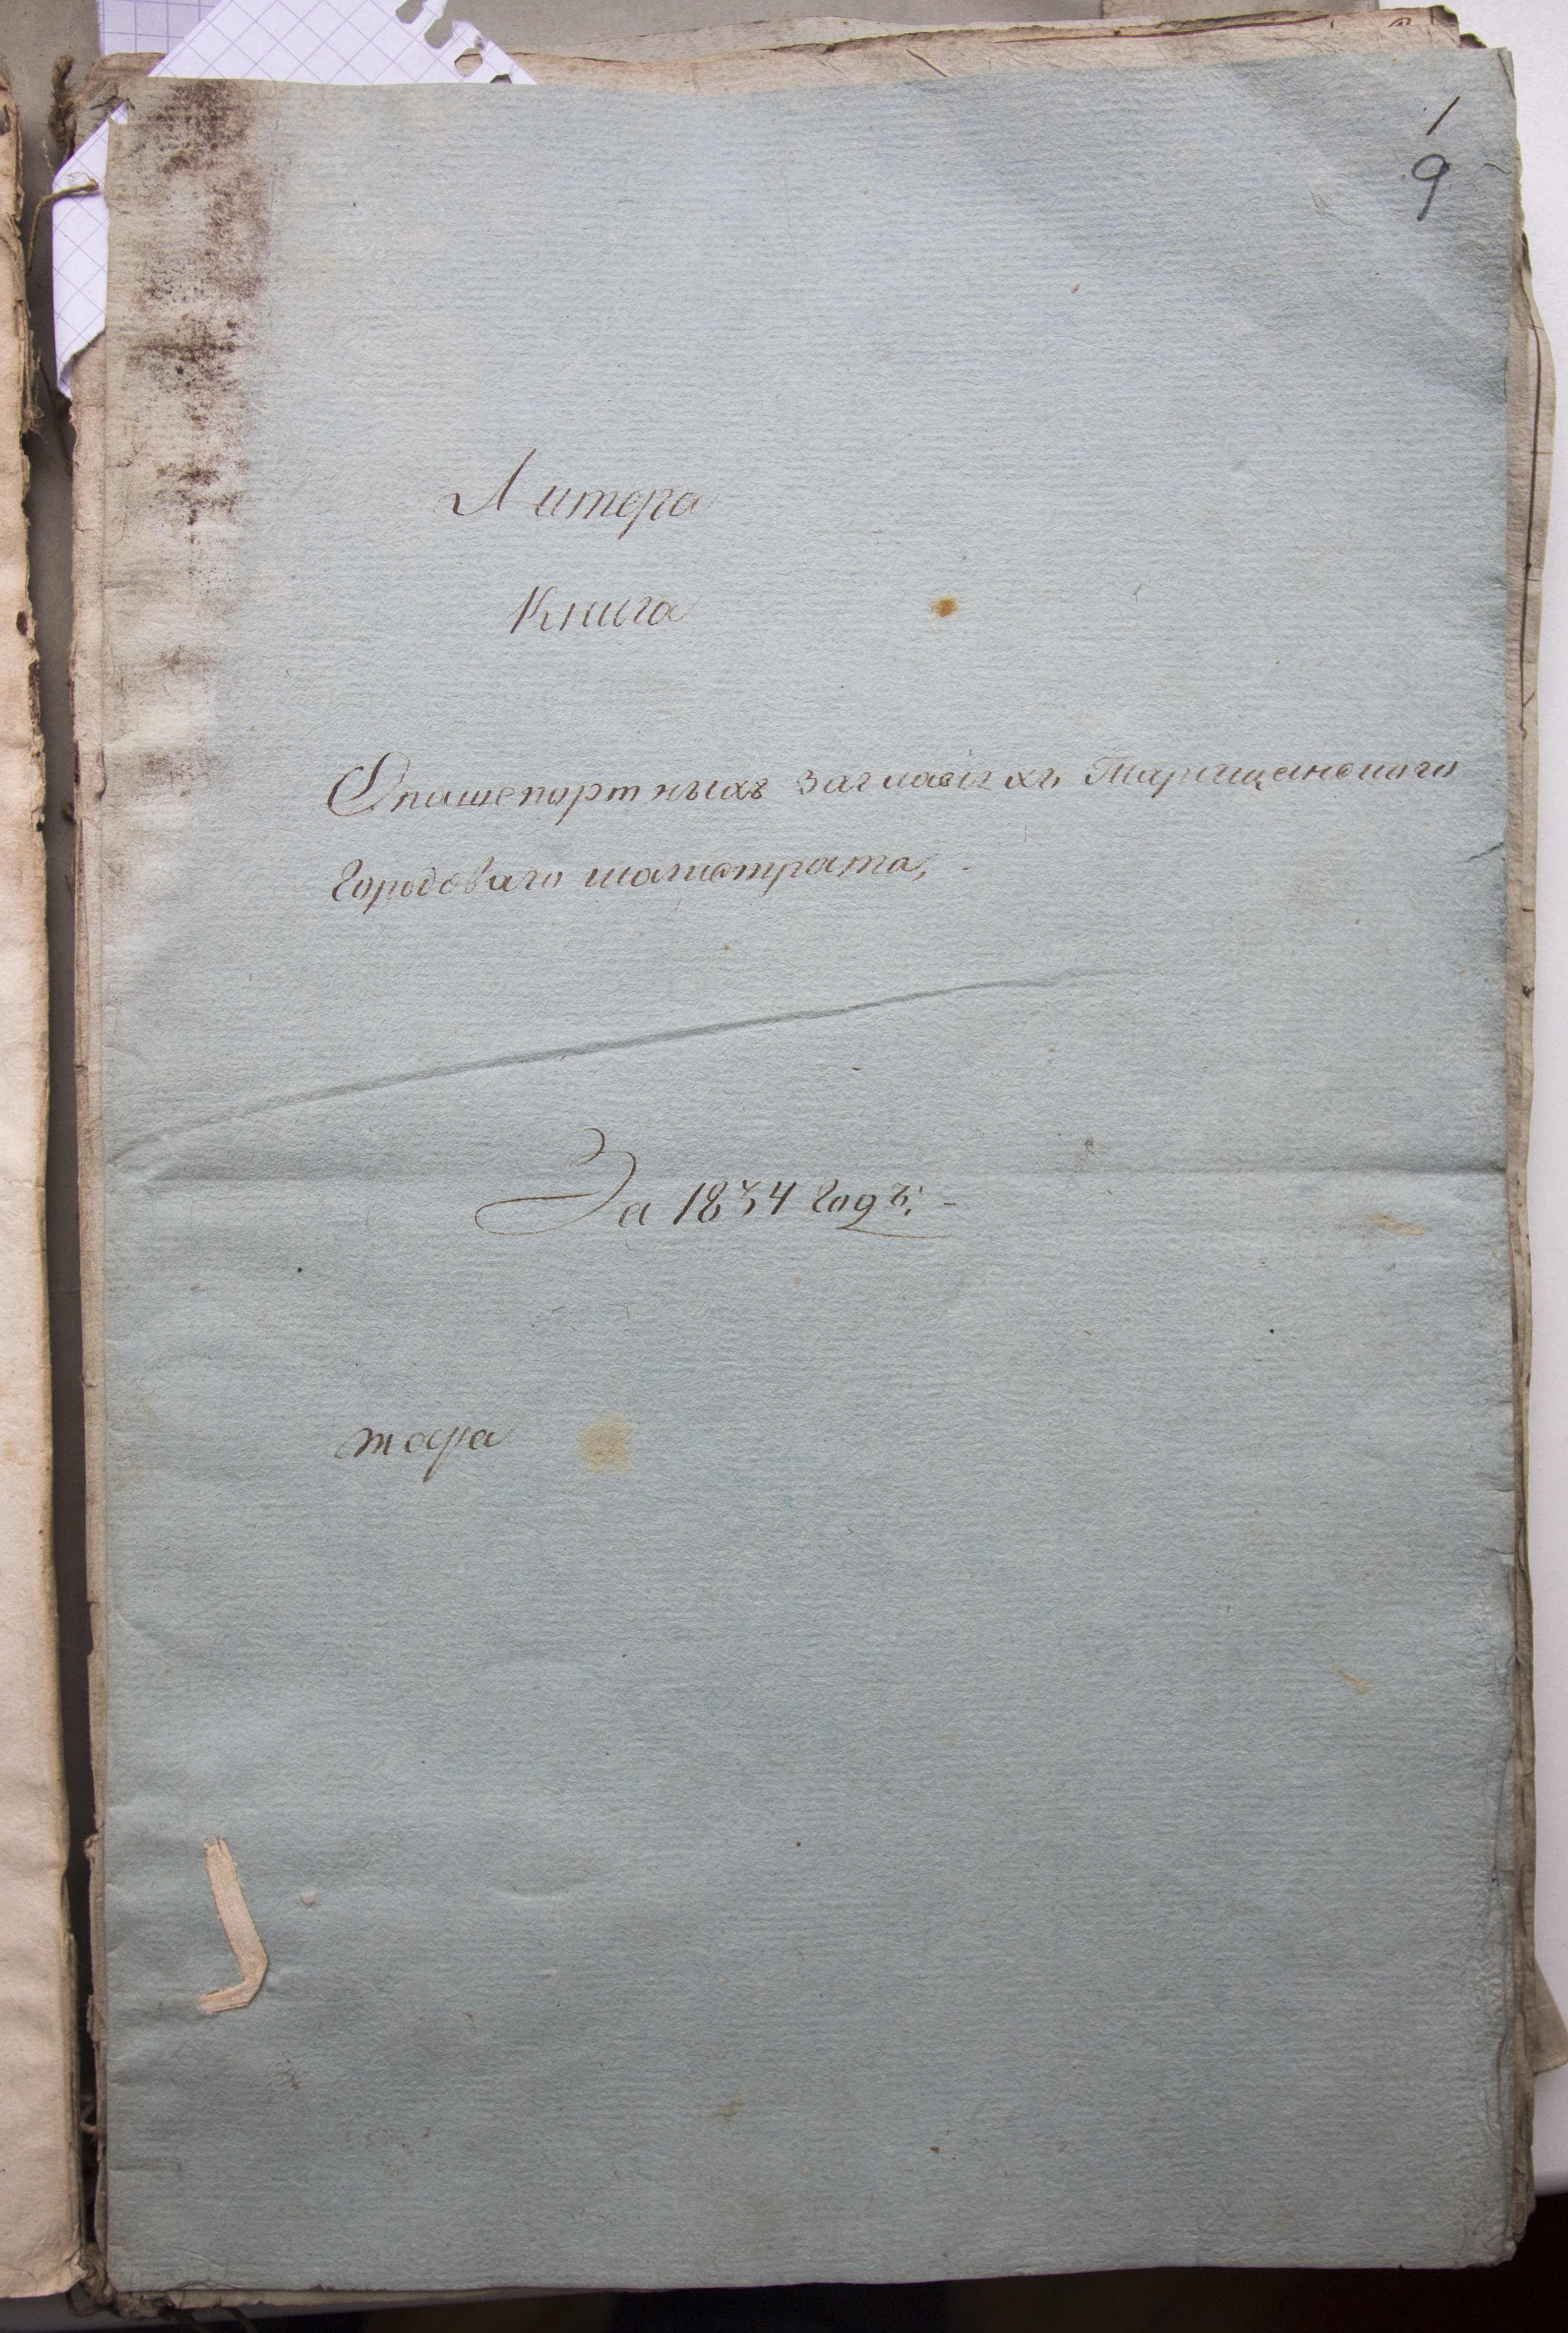 1
9
Литера
Книга
О пашепортныхъ заглавiяхъ Таращанского
Городоваго магистрата,
За 1834 годъ; -